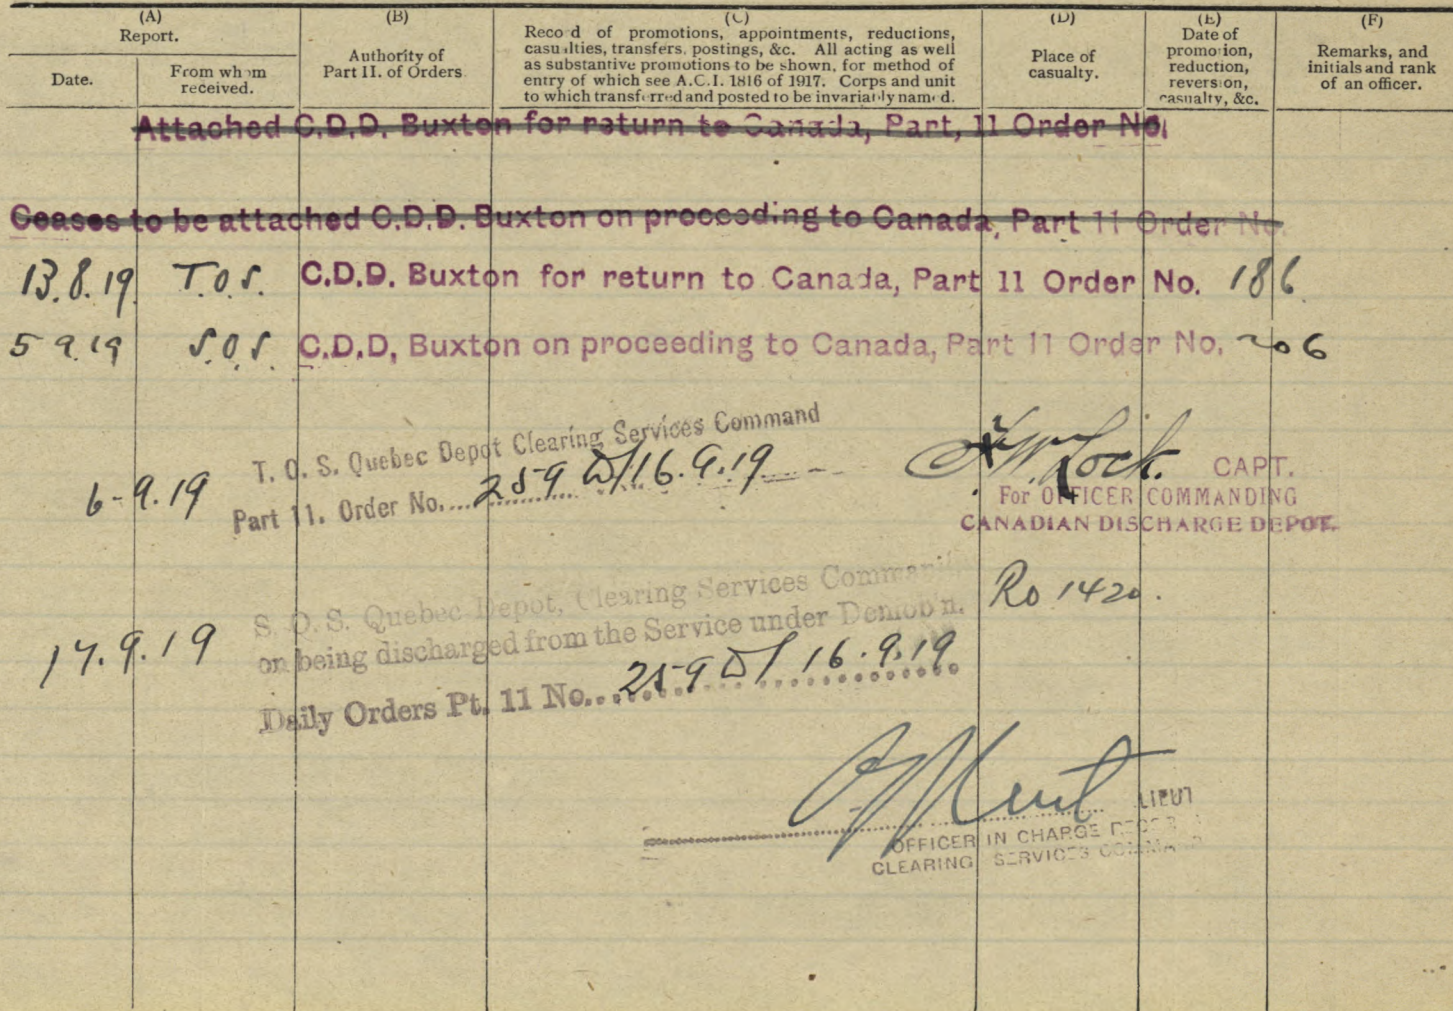 (A)
Report.
Date.
From whom received.
(B)
Authority of
Part II. of Orders
(C)
Record of promotions, appointments, reductions,
casualties, transfers, postings, &c. All acting as well
as substantive promotions to be shown, for method of
entry of which see A.C.I. 1816 of 1917. Corps and unit
to which transferred and posted to be invariably named.
(D)
Place of
casualty.
(E)
Date of
promotion,
reduction,
reversion,
casualty, &c.
(F)
Remarks, and
initials and rank
of an officer.
Attached C.D.D. Buxton for return to Canada, Part, 11 Order No.
Ceases to be attached C.D.D. Buxton on proceeding to Canada, Part 11 Order No.
13.8.19 T.O.S. C.D.D. Buxton for return to Canada, Part 11 Order No. 186
5 9.19 S.O.S. C.D.D, Buxton on proceeding to Canada, Part 11 Order No. 206
T. O. S. Quebec Depot Clearing Services Command
6-9.19 Part 11. Order No. 259 D/16.9.19
Lock. CAPT.
For OFFICER COMMANDING
CANADIAN DISCHARGE DEPOT.
Ro 1420.
S. O. S. Quebec Depot, Clearing Services Command
17.9.19 on being discharged from the Service under Demob'n.
Daily Orders Pt. 11 No. 259 D/ 16.9.19
LIEUT
OFFICER IN CHARGE
CLEARING SERVICES COMMAND